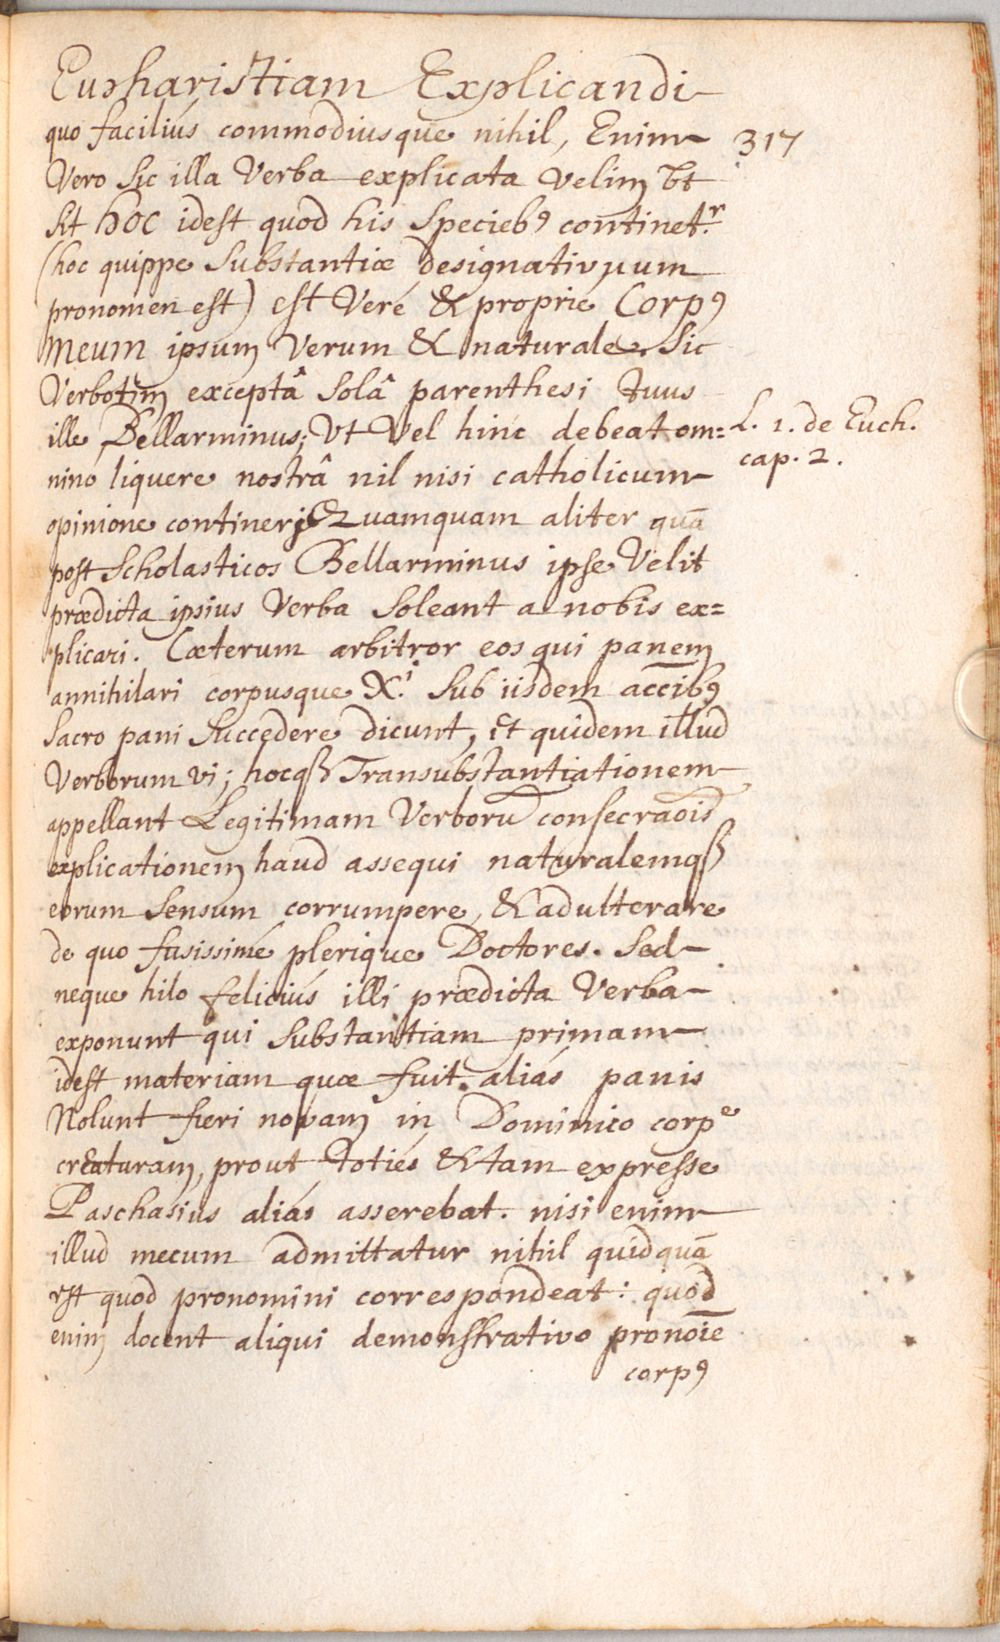 Eucharistiam Explicandi
quo faciliús commodiusque nihil, Enim
317
Vero Sic illa Verba explicata Velim Vt
sit HOC idest quod his Specieb9 continet.r
(hoc quippe Substantiæ designativuum
pronomen est) est Veré & proprié Corp9
Meum ipsum Verum & naturale. Sic
Verbotim exceptâ Solâ parenthesi tuus
ille Bellarminus; Vt Vel hinc debeat om=
L. 1. de Euch.
cap. 2.
nino liquere nostrâ nil nisi catholicum
opinione contineri Quamquam aliter quā
post Scholasticos Bellarminus ipse Velit
prædicta ipsius Verba Soleant a nobis ex=
plicari. Cæterum arbitror eos qui panem
annihilari corpusque X.i Sub iisdem accīib9
Sacro pani Succedere dicunt, et quidem illud
Verborum vi; hocq Transubstantiationem
appellant Legitimam Verborū consecraōis
explicationem haud assequi naturalemq
eorum Sensum corrumpere, & adulterare
de quo fusissimé plerique Doctores. Sed
neque hilo feliciús illi prædicta Verba
exponunt qui Substantiam primam
idest materiam quæ fuit aliás panis
Nolunt fieri novam in Dominico corpe
creaturam, prout totiés & tam expresse
Paschasius aliás asserebat. nisi enim
illud mecum admittatur nihil quidquā
est quod pronomini correspondeat: quod
enim docent aliqui demonstrativo pronoīe
corp9